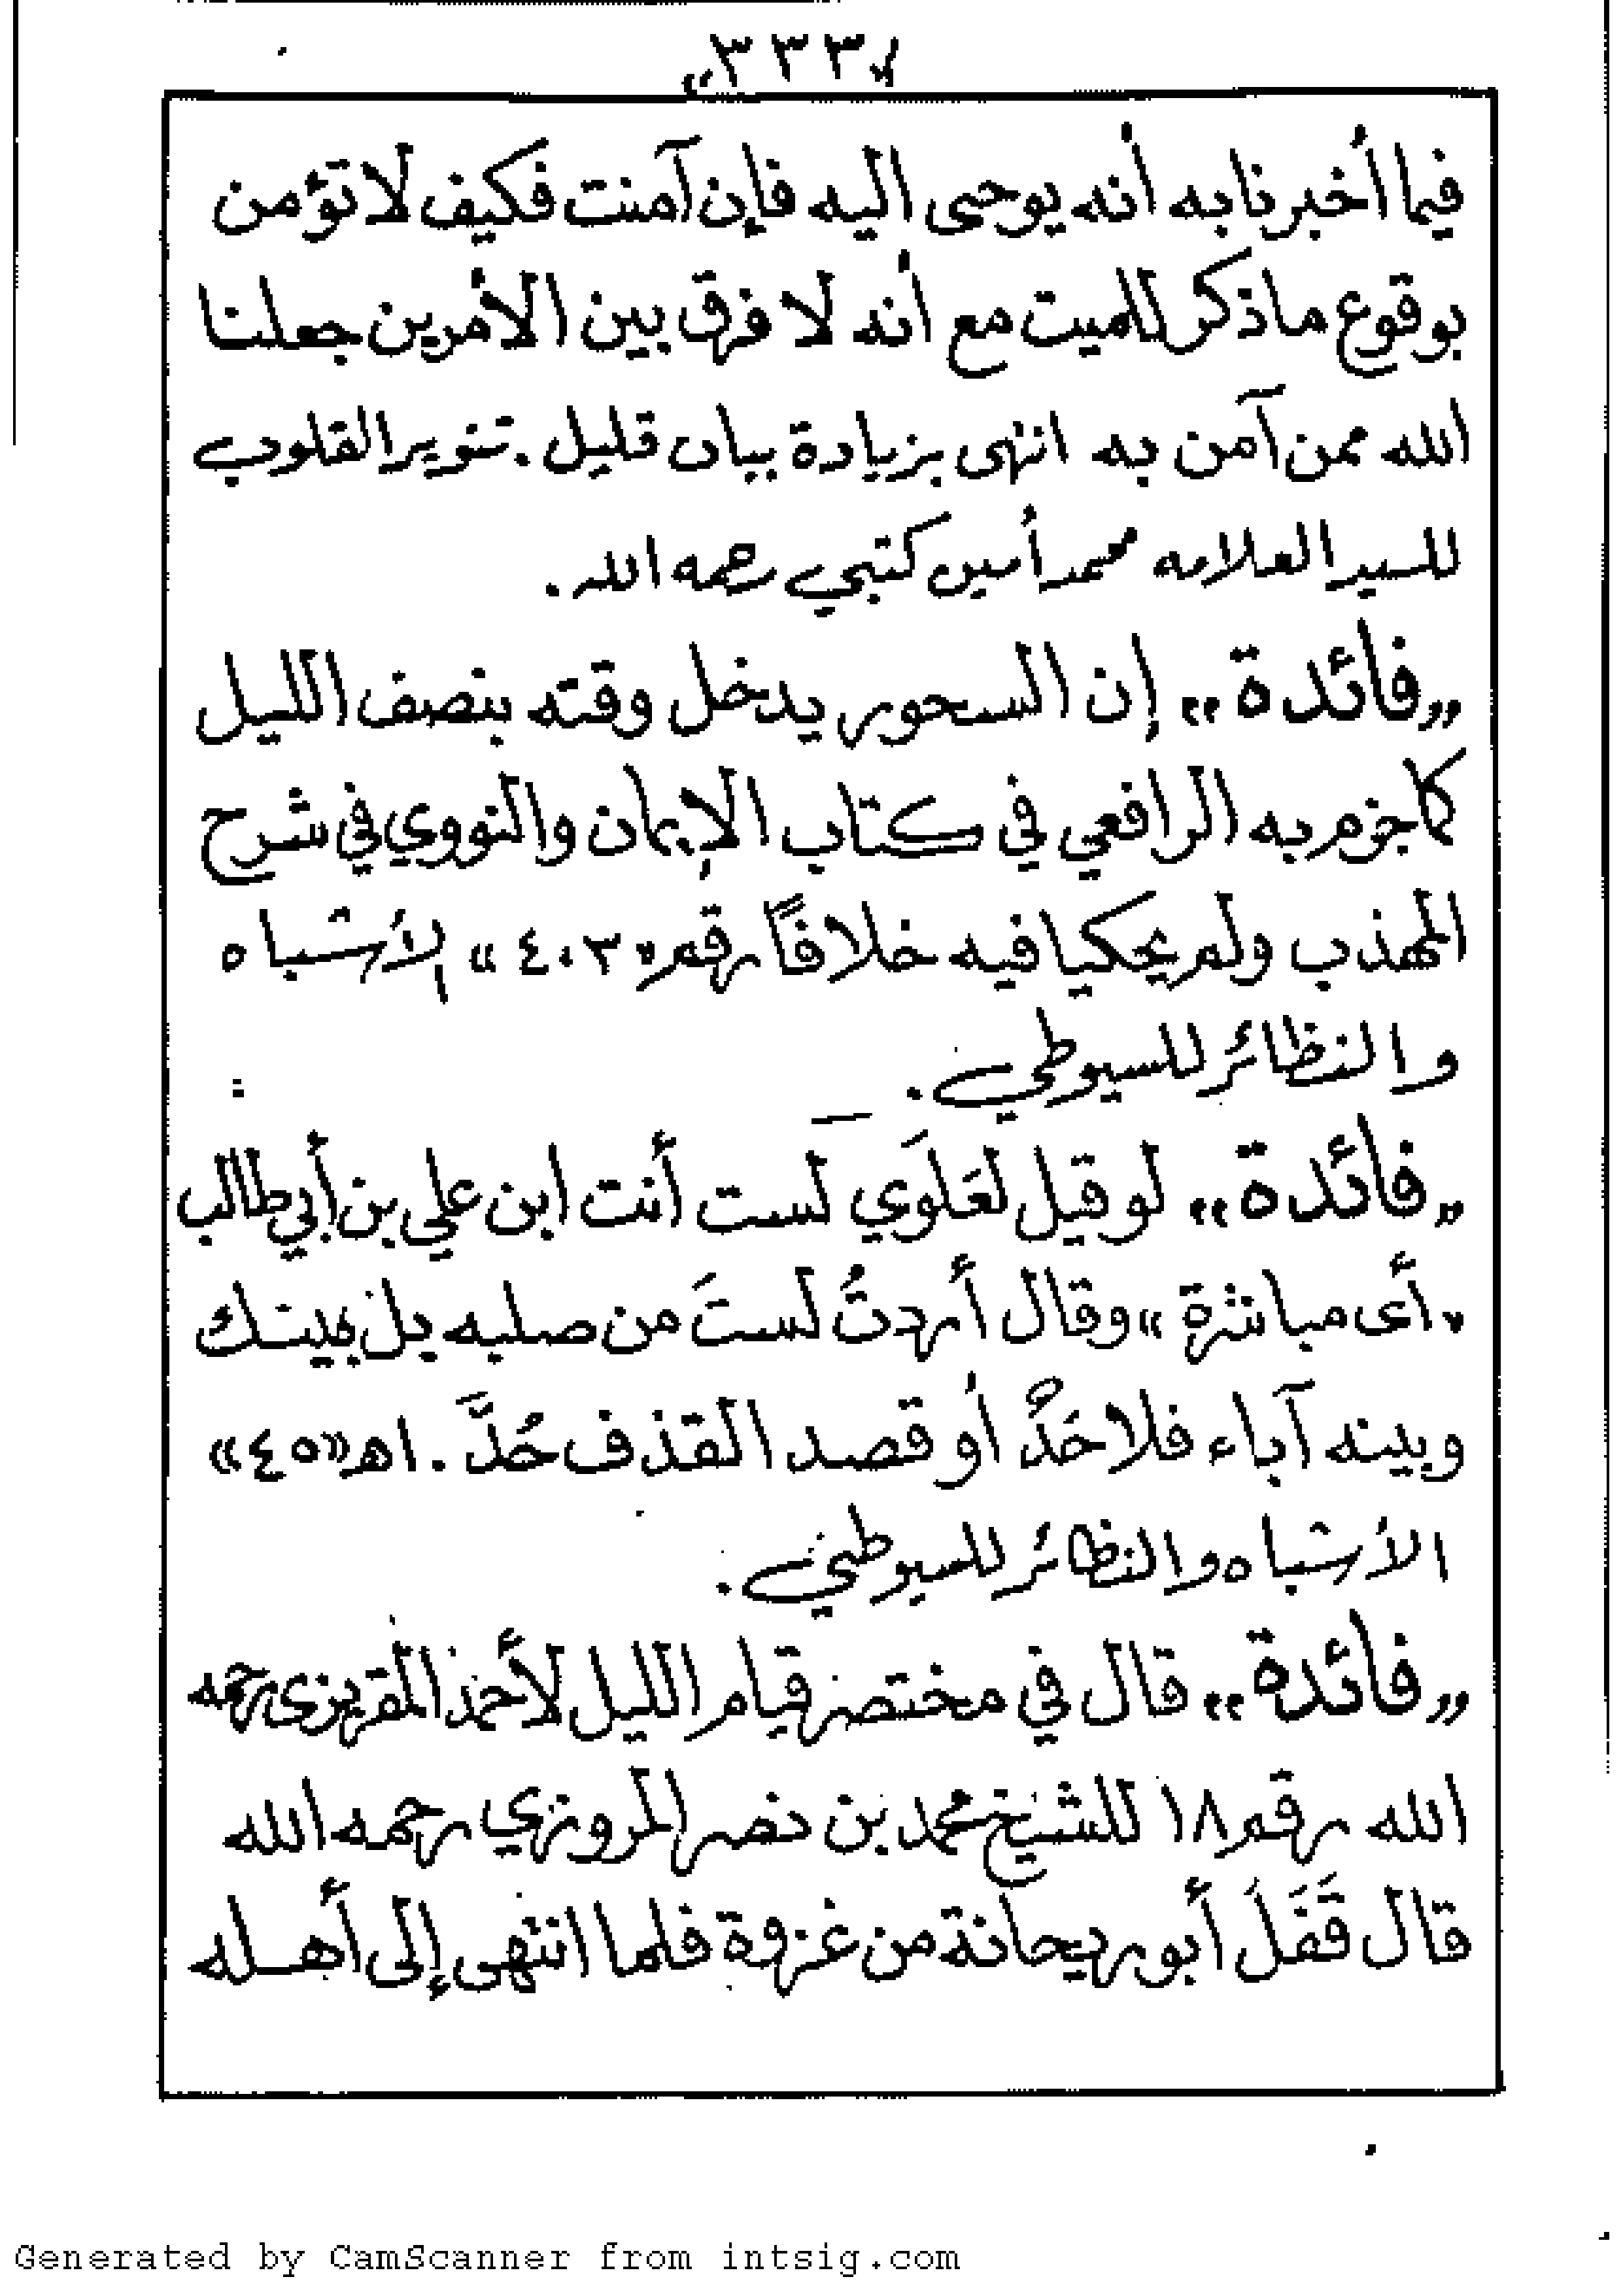 «٣٣٣»
فيما أخبرنا به أنه يوحى اليه فإن آمنت فكيف لا تؤمن
بوقوع ما ذكر للميت مع أنه لا فرق بين الأمرين جعلنا
الله ممن آمن به انتهى بزيادة بيان قليل . تنوير القلوب
للسيد العلامه محمد أمين كتبي رحمه الله .
«فائدة» إن السحور يدخل وقته بنصف الليل
كما جزم به الرافعي في كتاب الإيمان والنووي في شرح
المهذب ولم يحكيا فيه خلافًا رقم «٤٠٣» الأشباه
والنظائر للسيوطي .
«فائدة» لو قيل لعَلَوي لست أنت ابن علي بن أبي طالب
«أى مباشرة» وقال أردتُ لستَ من صلبه بل بينك
وبينه آباء فلا حَدٌ أو قصد القذف حُدَّ . اهـ «٤٥»
الأشباه والنظائر للسيوطي .
«فائدة» قال في مختصر قيام الليل لأحمد المقريزى رحمه
الله رقم ١٨ للشيخ محمد بن نصر المروزي رحمه الله
قال قَفَلَ أبو ريحانة من غزوة فلما انتهى إلى أهله
Generated by CamScanner from intsig.com